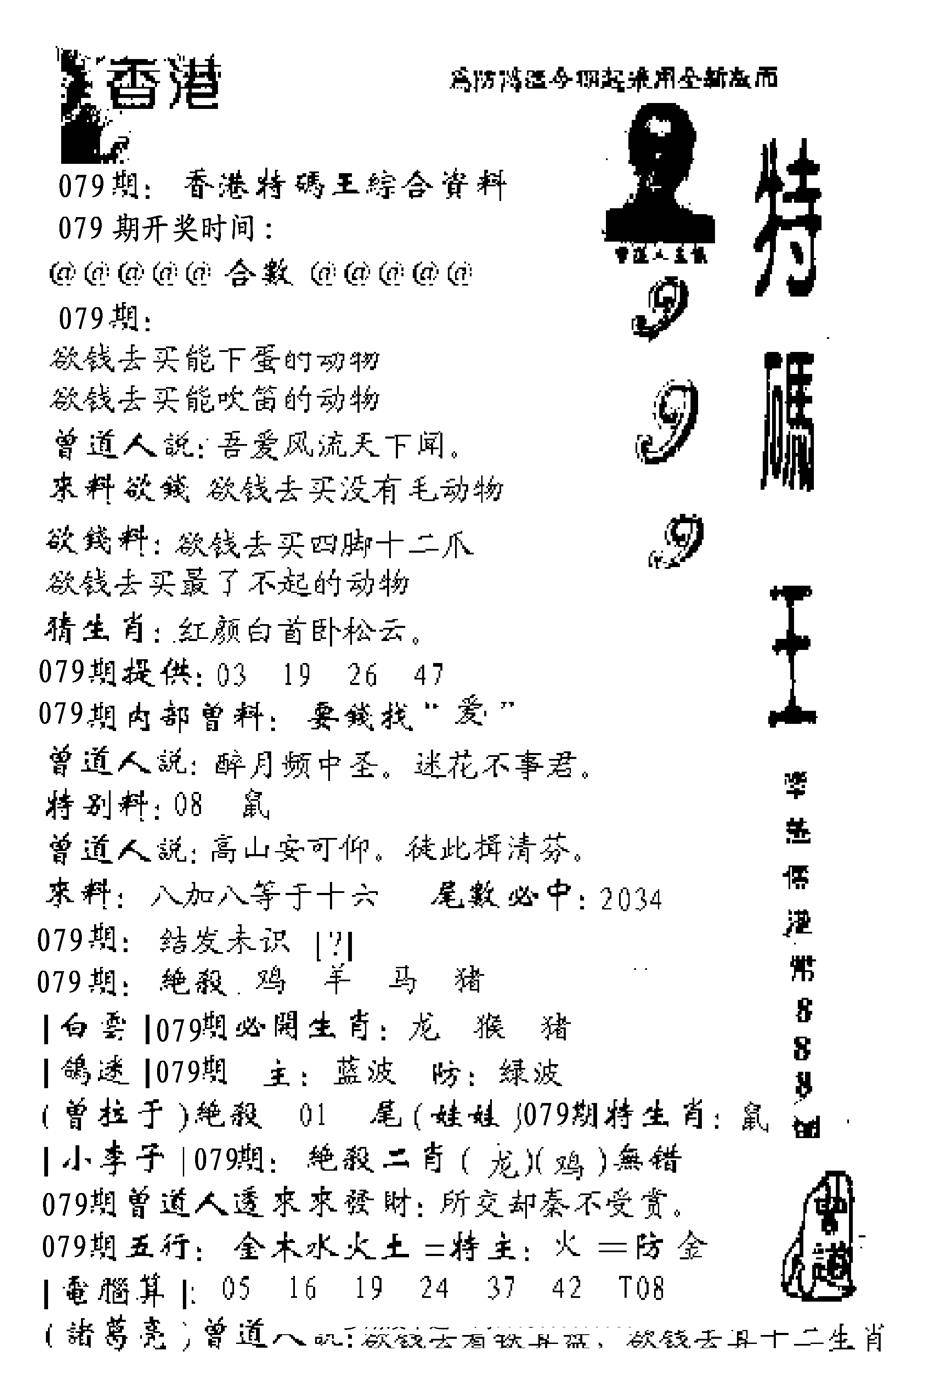 香港
特碼王
999
079期：香港特碼王綜合資料
079期开奖时间：
@@@@@合數@@@@@
079期：
欲钱去买能下蛋的动物
欲钱去买能吹笛的动物
曾道人説：吾爱风流天下闻。
來料欲錢 欲钱去买没有毛动物
欲錢料：欲钱去买四脚十二爪
欲钱去买最了不起的动物
猜生肖：红颜白首卧松云。
079期提供：03 19 26 47
079期内部曾料：要錢找“爱”
曾道人説：醉月频中圣。迷花不事君。
特别料：08 鼠
曾道人説：高山安可仰。徒此揖清芬。
來料：八加八等于十六 尾數必中：2034
079期：结发未识 [?]
079期：絶殺 鸡 羊 马 猪
|白雲|079期必開生肖：龙 猴 猪
|鴿迷|079期 主：蓝波 防：绿波
(曾拉于)絶殺 01 尾(娃娃)079期特生肖：鼠
|小李子|079期：絶殺二肖(龙)(鸡)無错
079期曾道人透來來發財：所交却秦不受赏。
079期五行：金木水火土=特主：火=防金
|電腦算|：05 16 19 24 37 42 T08
(諸葛亮)曾道人説：欲钱去 欲钱去 十二生肖
港幣888
曾道